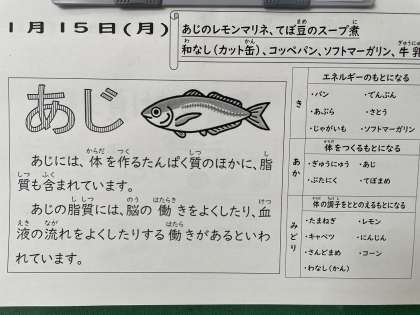 1月15日(月)
あじのレモンマリネ、てぼ豆のスープ煮
和なし(カット缶)、コッペパン、ソフトマーガリン、牛乳
あじ
あじには、体を作るたんぱく質のほかに、脂
質も含まれています。
あじの脂質には、脳の働きをよくしたり、血
液の流れをよくしたりする働きがあるといわ
れています。
き
エネルギーのもとになる
・パン ・でんぷん
・あぶら ・さとう
・じゃがいも ・ソフトマーガリン
あか
体をつくるもとになる
・ぎゅうにゅう ・あじ
・ぶたにく ・てぼまめ
みどり
体の調子をととのえるもとになる
・たまねぎ ・レモン
・キャベツ ・にんじん
・さんどまめ ・コーン
・わなし(かん)